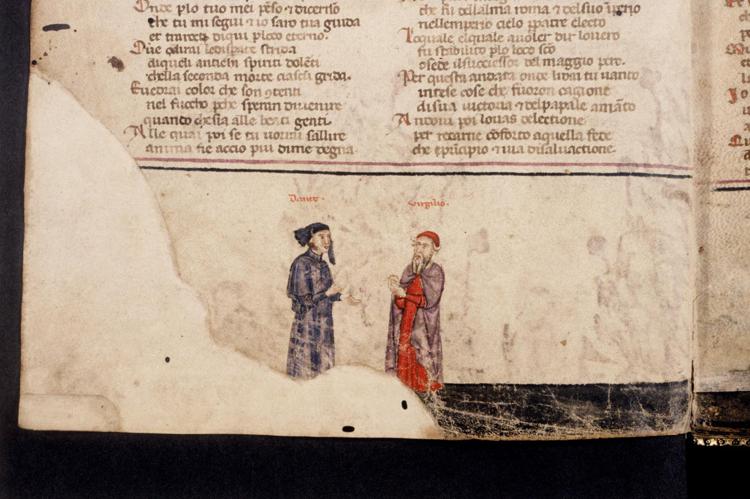 Onde p lo tuo mei pēso e discerno
che tu mi segui e io saro tua guida
et trarocti di qui p loco eterno.
Oue odirai le dispate strida
di quelli antichi spiriti dolēti
chella seconda morte ciascū grida.
E uedrai color che son cōtenti
nel fuocho pche speran di uenire
quando che sia alle beati genti
Alle quai poi se tu uorrai sallire
anima fie accio piu di me degna
che fu dellalma roma e del suo īperio
nellemperio cielo p patre electo
La quale el quale a uoler dir lo uero
fu stabilito p lo loco sc̄o
o sede il successor del maggio pero.
Per questa andata onde li dai tu uanto
intese cose che fuoron cagione
di sua uictoria e del papale amāto
Andoui poi lo uas delectione
per recarne cōforto a quella fede
che e principio e uia di saluactione.
Dante.
Virgilio.